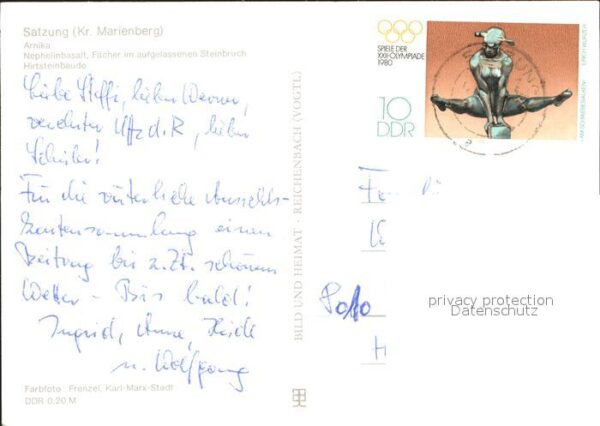 Satzung (Kr. Marienberg)
Arnika
Nephelinbasalt, Fächer im aufgelassenen Steinbruch
Hirtsteinbaude
Liebe Steffi, lieber Werner,
verehrter Uffz d. R., lieber
Schüler!
Für die väterliche Ansichts-
kartensammlung einen
Beitrag bei z. Zt. schönem
Wetter - Bis bald!
Ingrid, Anne, Heide
u. Wolfgang
Farbfoto: Frenzel, Karl-Marx-Stadt
DDR 0,20 M
BILD UND HEIMAT · REICHENBACH (VOGTL)
SPIELE DER
XXII. OLYMPIADE
1980
10
DDR
ERICH WURZER
AM SCHWEBEBALKEN
privacy protection
Datenschutz